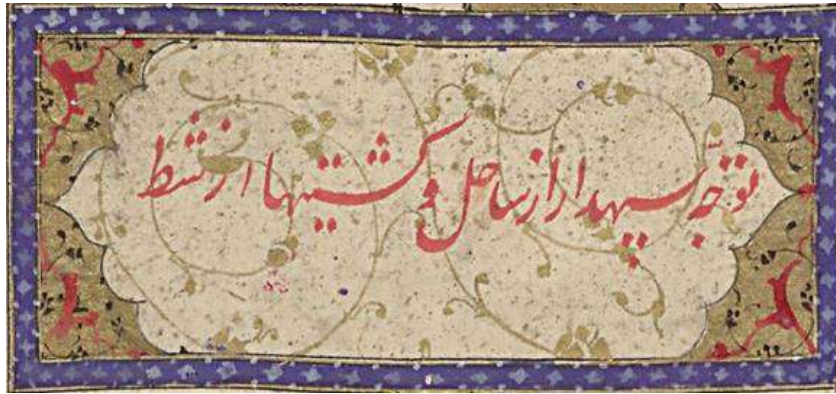 توجه سپهدار از ساحل و کشتیها از شط